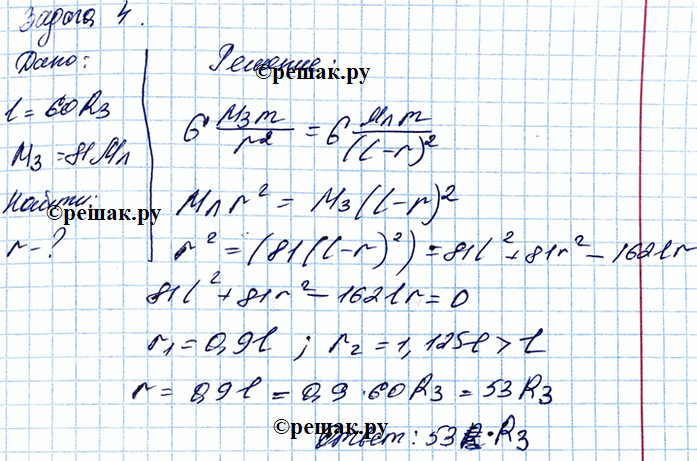 Задача 4.
Дано:
l = 60R₃
M₃ = 81Mл
Найти:
r - ?
Решение:
©решак.ру
6 M₃m/r² = 6 Mлm/(l-r)²
Mл r² = M₃(l-r)²
©решак.ру
r² = (81(l-r)²) = 81l² + 81r² - 162lr
81l² + 81r² - 162lr = 0
r₁ = 0,9l ; r₂ = 1,125l > l
r = 0,9l = 0,9·60R₃ = 53R₃
©решак.ру
Ответ: 53·R₃